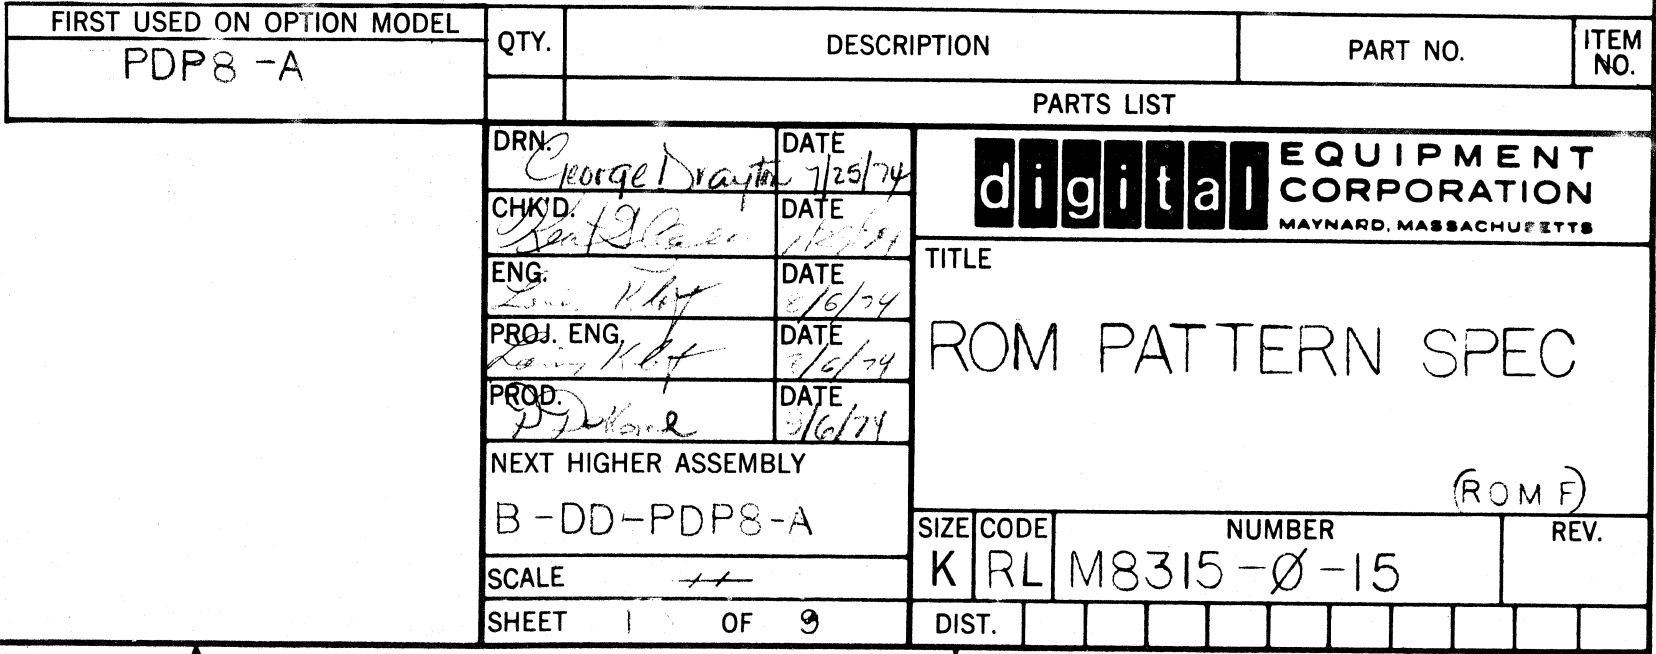 FIRST USED ON OPTION MODEL
PDP8-A
QTY.
DESCRIPTION
PART NO.
ITEM NO.
PARTS LIST
DRN.
George Drayton
DATE
7/25/74
CHK'D.
DATE
ENG.
DATE
8/6/74
PROJ. ENG.
DATE
8/6/74
PROD.
DATE
8/6/74
NEXT HIGHER ASSEMBLY
B-DD-PDP8-A
SCALE
SHEET 1 OF
digital EQUIPMENT CORPORATION
MAYNARD, MASSACHUSETTS
TITLE
ROM PATTERN SPEC
(ROM F)
SIZE
K
CODE
RL
NUMBER
M8315-Ø-15
REV.
DIST.